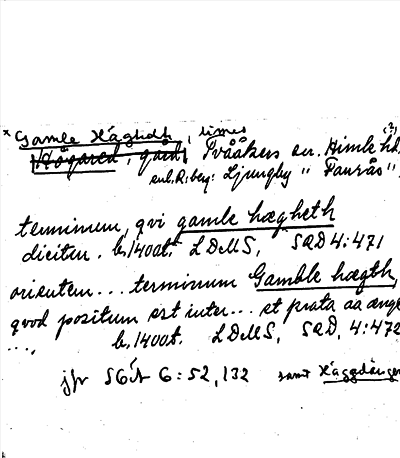 x Gamle Häghdh, limes (?)
Högared, gård, Tvååkers sn. Himle hd.
enl. R: beg: Ljungby " Faurås".
terminum, qvi gamle hægheth
dicitur. b. 1400t. LDMS, SRD 4:471
orientem... terminum Gamble hægth,
qvod positum est inter... et prata aa ænge
...., b. 1400t. LDMS, SRD, 4:472
jfr SGÅ 6:52, 132 samt Häggdängen